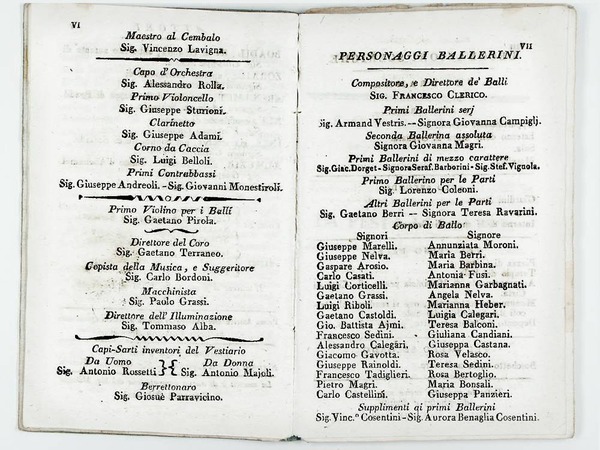 VI
Maestro al Cembalo
Sig. Vincenzo Lavigna.
Capo d'Orchestra
Sig. Alessandro Rolla.
Primo Violoncello
Sig. Giuseppe Sturioni.
Clarinetto
Sig. Giuseppe Adami.
Corno da Caccia
Sig. Luigi Belloli.
Primi Contrabbassi
Sig. Giuseppe Andreoli. - Sig. Giovanni Monestiroli.
Primo Violino per i Balli
Sig. Gaetano Pirola.
Direttore del Coro
Sig. Gaetano Terraneo.
Copista della Musica, e Suggeritore
Sig. Carlo Bordoni.
Macchinista
Sig. Paolo Grassi.
Direttore dell' Illuminazione
Sig. Tommaso Alba.
Capi-Sarti inventori del Vestiario
Da Uomo Da Donna
Sig. Antonio Rossetti }{ Sig. Antonio Majoli.
Berrettonaro
Sig. Giosuè Parravicino.
VII
PERSONAGGI BALLERINI.
Compositore, e Direttore de' Balli
SIG. FRANCESCO CLERICO.
Primi Ballerini serj
Sig. Armand Vestris. -- Signora Giovanna Campiglj.
Seconda Ballerina assoluta
Signora Giovanna Magri.
Primi Ballerini di mezzo carattere
Sig. Giac. Dorget - Signora Seraf. Barborini - Sig. Stef. Vignola.
Primo Ballerino per le Parti
Sig. Lorenzo Coleoni.
Altri Ballerini per le Parti
Sig. Gaetano Berri -- Signora Teresa Ravarini.
Corpo di Ballo
Signori Signore
Giuseppe Marelli. Annunziata Moroni.
Giuseppe Nelva. Maria Berri.
Gaspare Arosio. Maria Barbina.
Carlo Casati. Antonia Fusi.
Luigi Corticelli. Marianna Garbagnati.
Gaetano Grassi. Angela Nelva.
Luigi Riboli. Marianna Heber.
Gaetano Castoldi. Luigia Calegari.
Gio. Battista Ajmi. Teresa Balconi.
Francesco Sedini. Giuliana Candiani.
Alessandro Calegari. Giuseppa Castana.
Giacomo Gavotta. Rosa Velasco.
Giuseppe Rainoldi. Teresa Sedini.
Francesco Tadiglieri. Rosa Bertoglio.
Pietro Magri. Maria Bonsali.
Carlo Castellini. Giuseppa Panzieri.
Supplimenti ai primi Ballerini
Sig. Vinc.° Cosentini - Sig. Aurora Benaglia Cosentini.